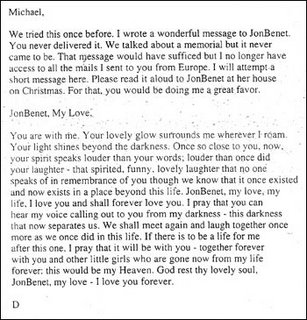 Michael,
We tried this once before. I wrote a wonderful message to JonBenet.
You never delivered it. We talked about a memorial but it never
came to be. That message would have sufficed but I no longer have
access to all the mails I sent to you from Europe. I will attempt a
short message here. Please read it aloud to JonBenet at her house
on Christmas. For that, you would be doing me a great favor.
JonBenet, My Love,
You are with me. Your lovely glow surrounds me wherever I roam.
Your light shines beyond the darkness. Once so close to you, now,
your spirit speaks louder than your words; louder than once did
your laughter - that spirited, funny, lovely laughter that no one
speaks of in remembrance of you though we know that it once existed
and now exists in a place beyond this life. JonBenet, my love, my
life, I love you and shall forever love you. I pray that you can
hear my voice calling out to you from my darkness - this darkness
that now separates us. We shall meet again and laugh together once
more as we once did in this life. If there is to be a life for me
after this one, I pray that it will be with you - together forever
with you and other little girls who are gone now from my life
forever; this would be my Heaven. God rest thy lovely soul,
JonBenet, my love - I love you forever.
D